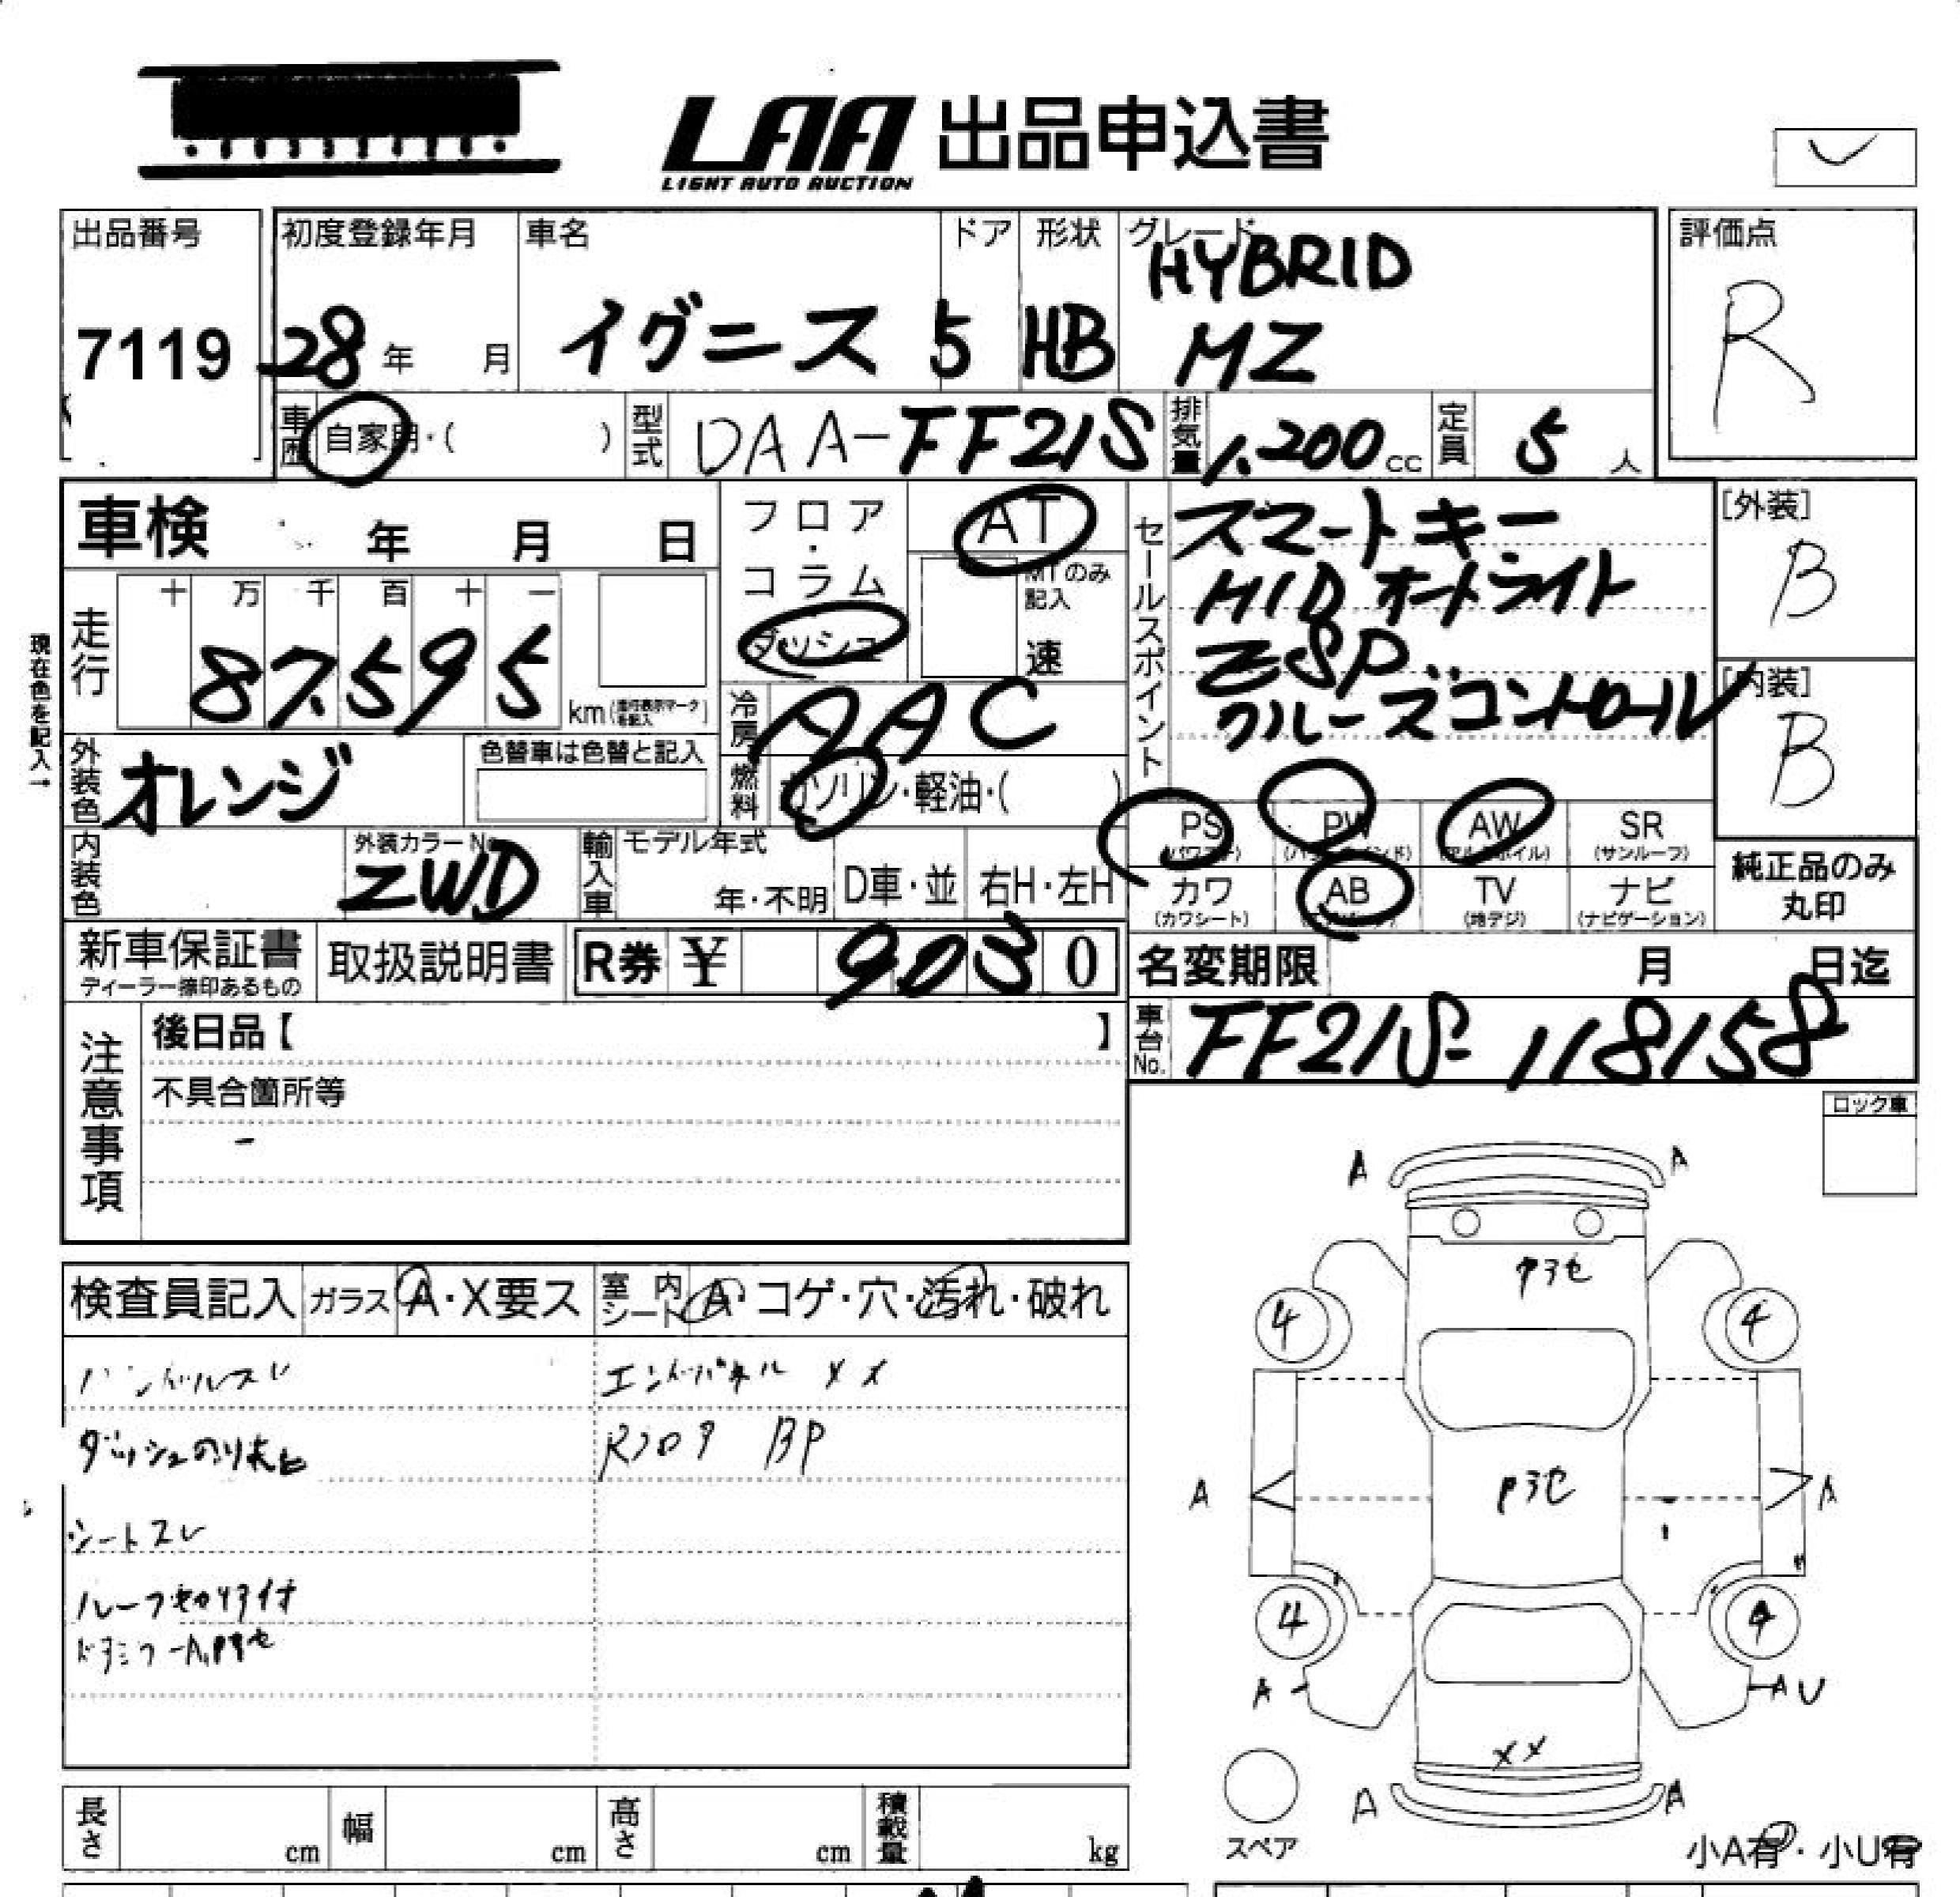 LAA 出品申込書
LIGHT AUTO AUCTION
出品番号
7119
初度登録年月
28年 月
車名
イグニス
ドア
5
形状
HB
グレード
HYBRID
MZ
評価点
R
車歴 自家用・( )
型式 DAA-FF21S
排気量 1.200 cc
定員 5 人
車検 年 月 日
フロア・コラム
ダッシュ
AT
MTのみ記入
速
セールスポイント
スマートキー
HID オートライト
ESP
クルーズコントロール
[外装]
B
[内装]
B
現在色を記入→
走行
十 万 千 百 十 一
87.595
km(走行表示マークを記入)
冷房 AAC
燃料 ガソリン・軽油・( )
外装色 オレンジ
色替車は色替と記入
PS (パワステ)
PW (パワーウインド)
AW (アルミホイル)
SR (サンルーフ)
内装色
外装カラーNo.
ZWD
輸入車 モデル年式
年・不明
D車・並
右H・左H
カワ (カワシート)
AB (エアバック)
TV (地デジ)
ナビ (ナビゲーション)
純正品のみ丸印
新車保証書
ディーラー捺印あるもの
取扱説明書
R券 ¥ 9030
名変期限 月 日迄
車台No. FF21S-118158
注意事項
後日品【 】
不具合箇所等
ロック車
検査員記入
ガラス A・X要ス
室内シート A・コゲ・穴・汚れ・破れ
ハンドルスレ
エンドパネル XX
ダッシュのり末白
Rフロア BP
シートスレ
A A
4 4
A A
4 4
A AU
XX
A A
スペア
小A有・小U有
長さ cm
幅 cm
高さ cm
積載量 kg